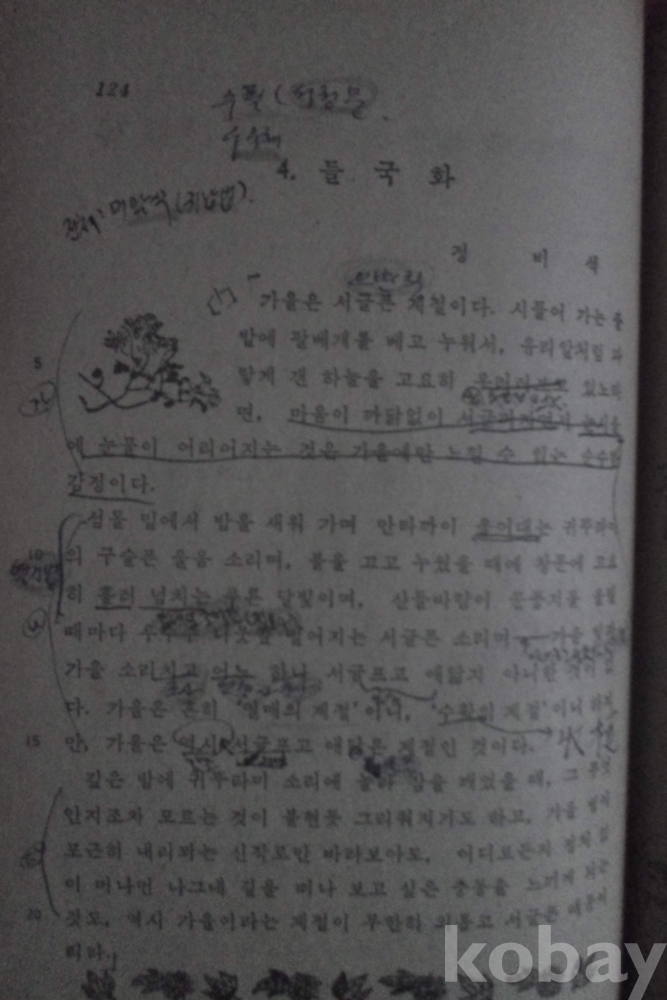 124
수필 (서정문)
우수체
4. 들 국 화
전체: 미괄식 (귀납법).
정 비 석
가을은 서글픈 계절이다. 시들어 가는 풀
밭에 팔베개를 베고 누워서, 유리알처럼 파
랗게 갠 하늘을 고요히 있노라
5
면, 마음이 까닭없이 서글퍼지면서 눈시울
에 눈물이 어리어지는 것은 가을에만 느낄 수 있는 순수한
감정이다.
섬돌 밑에서 밤을 새워 가며 안타까이 울어대는 귀뚜라미
10
의 구슬픈 울음 소리며, 불을 끄고 누웠을 때에 창문에 고요
히 흘러 넘치는 푸른 달빛이며, 산들바람이 문풍지를 울릴
때마다 우수수 나뭇잎 떨어지는 서글픈 소리며, 가을
가을 소리치고 어느 하나 서글프고 애닯지 아니한 것이 없
다. 가을은 흔히 '열매의 계절'이니, '수확의 계절'이니 하지
15
만, 가을은 역시 서글프고 애닯은 계절인 것이다.
깊은 밤에 귀뚜라미 소리에 놀라 잠을 깨었을 때, 그 무엇
인지조차 모르는 것이 불현듯 그리워지기도 하고, 가을 볕이
포근히 내리쬐는 신작로만 바라보아도, 어디로든지 정처 없
이 머나먼 나그네 길을 떠나 보고 싶은 충동을 느끼게 되는
20
것도, 역시 가을이라는 계절이 무한히 외롭고 서글픈 때문이
리라.
kobay